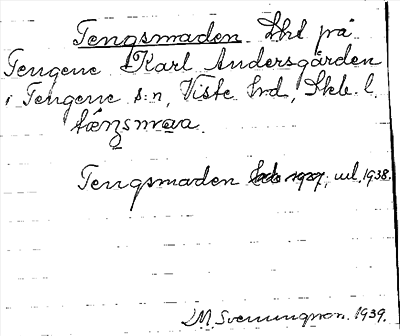 Tengsmaden. Skt på
Tengene Karl Andersgården
i Tengene s:n, Viste hrd, Skb. l.
tæŋsmaa.
Tengsmaden uel. 1938.
M. Svenungsson. 1939.